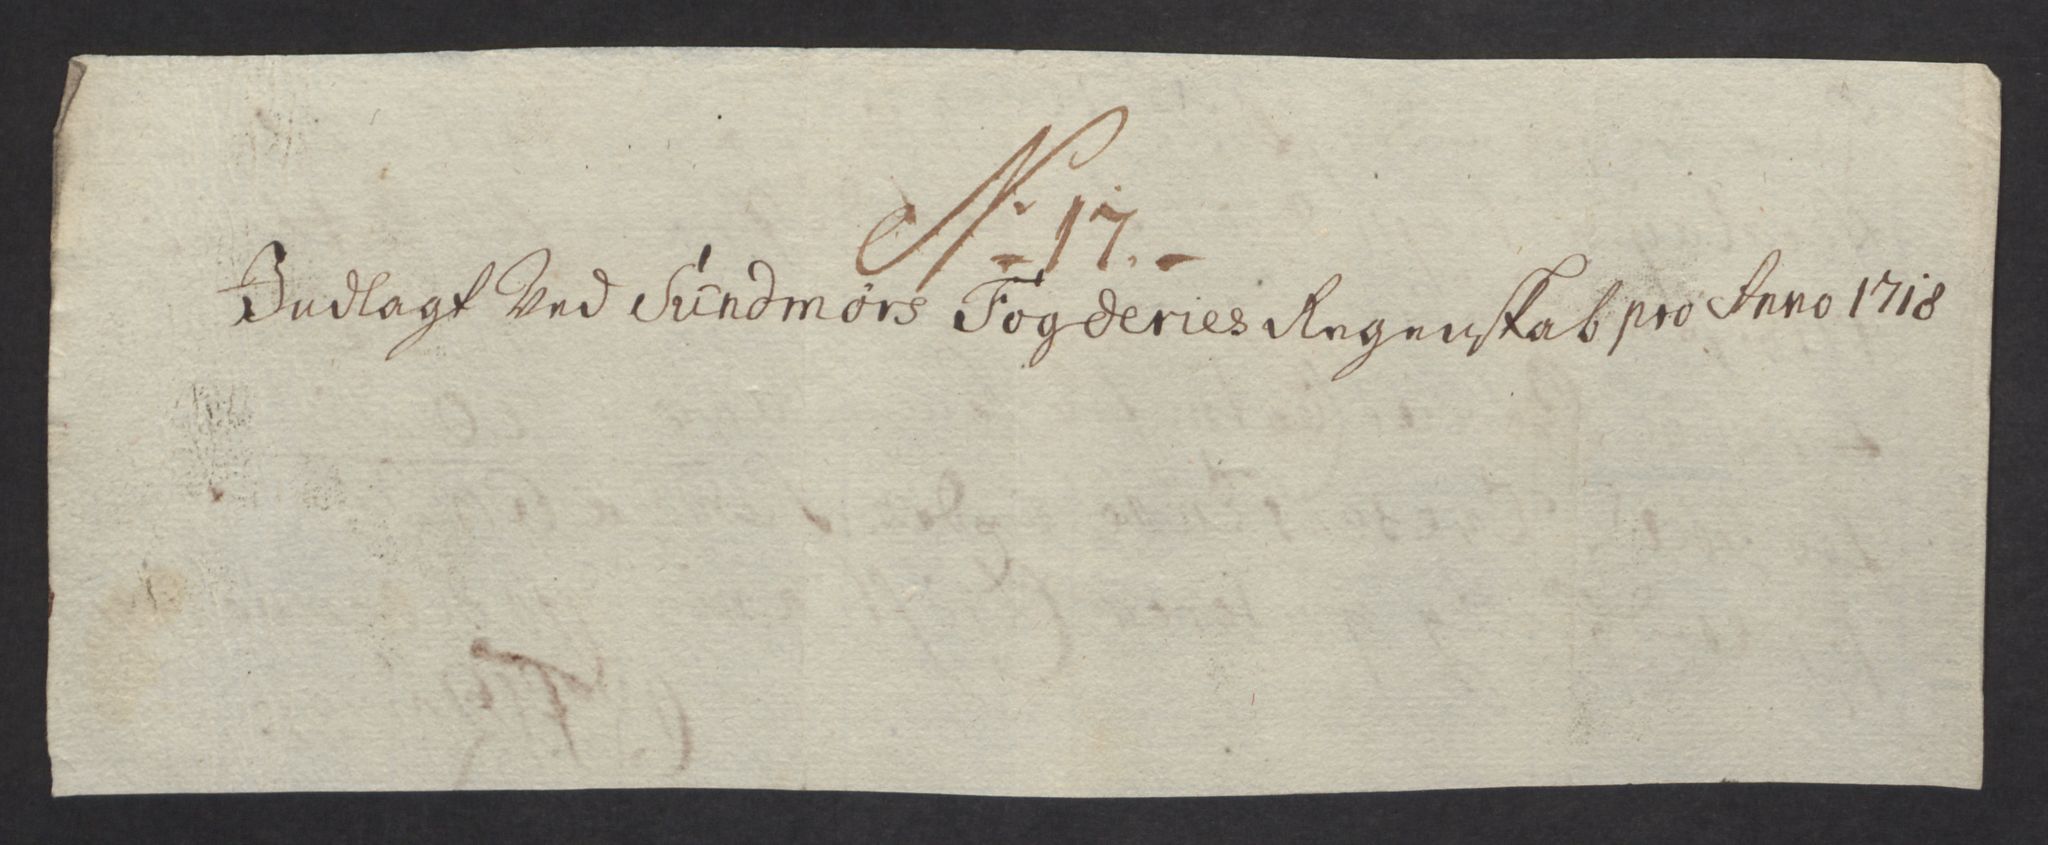 N. 17.
Indlagt Ved Sundmørs Fogderies Regenskab pro Anno 1718